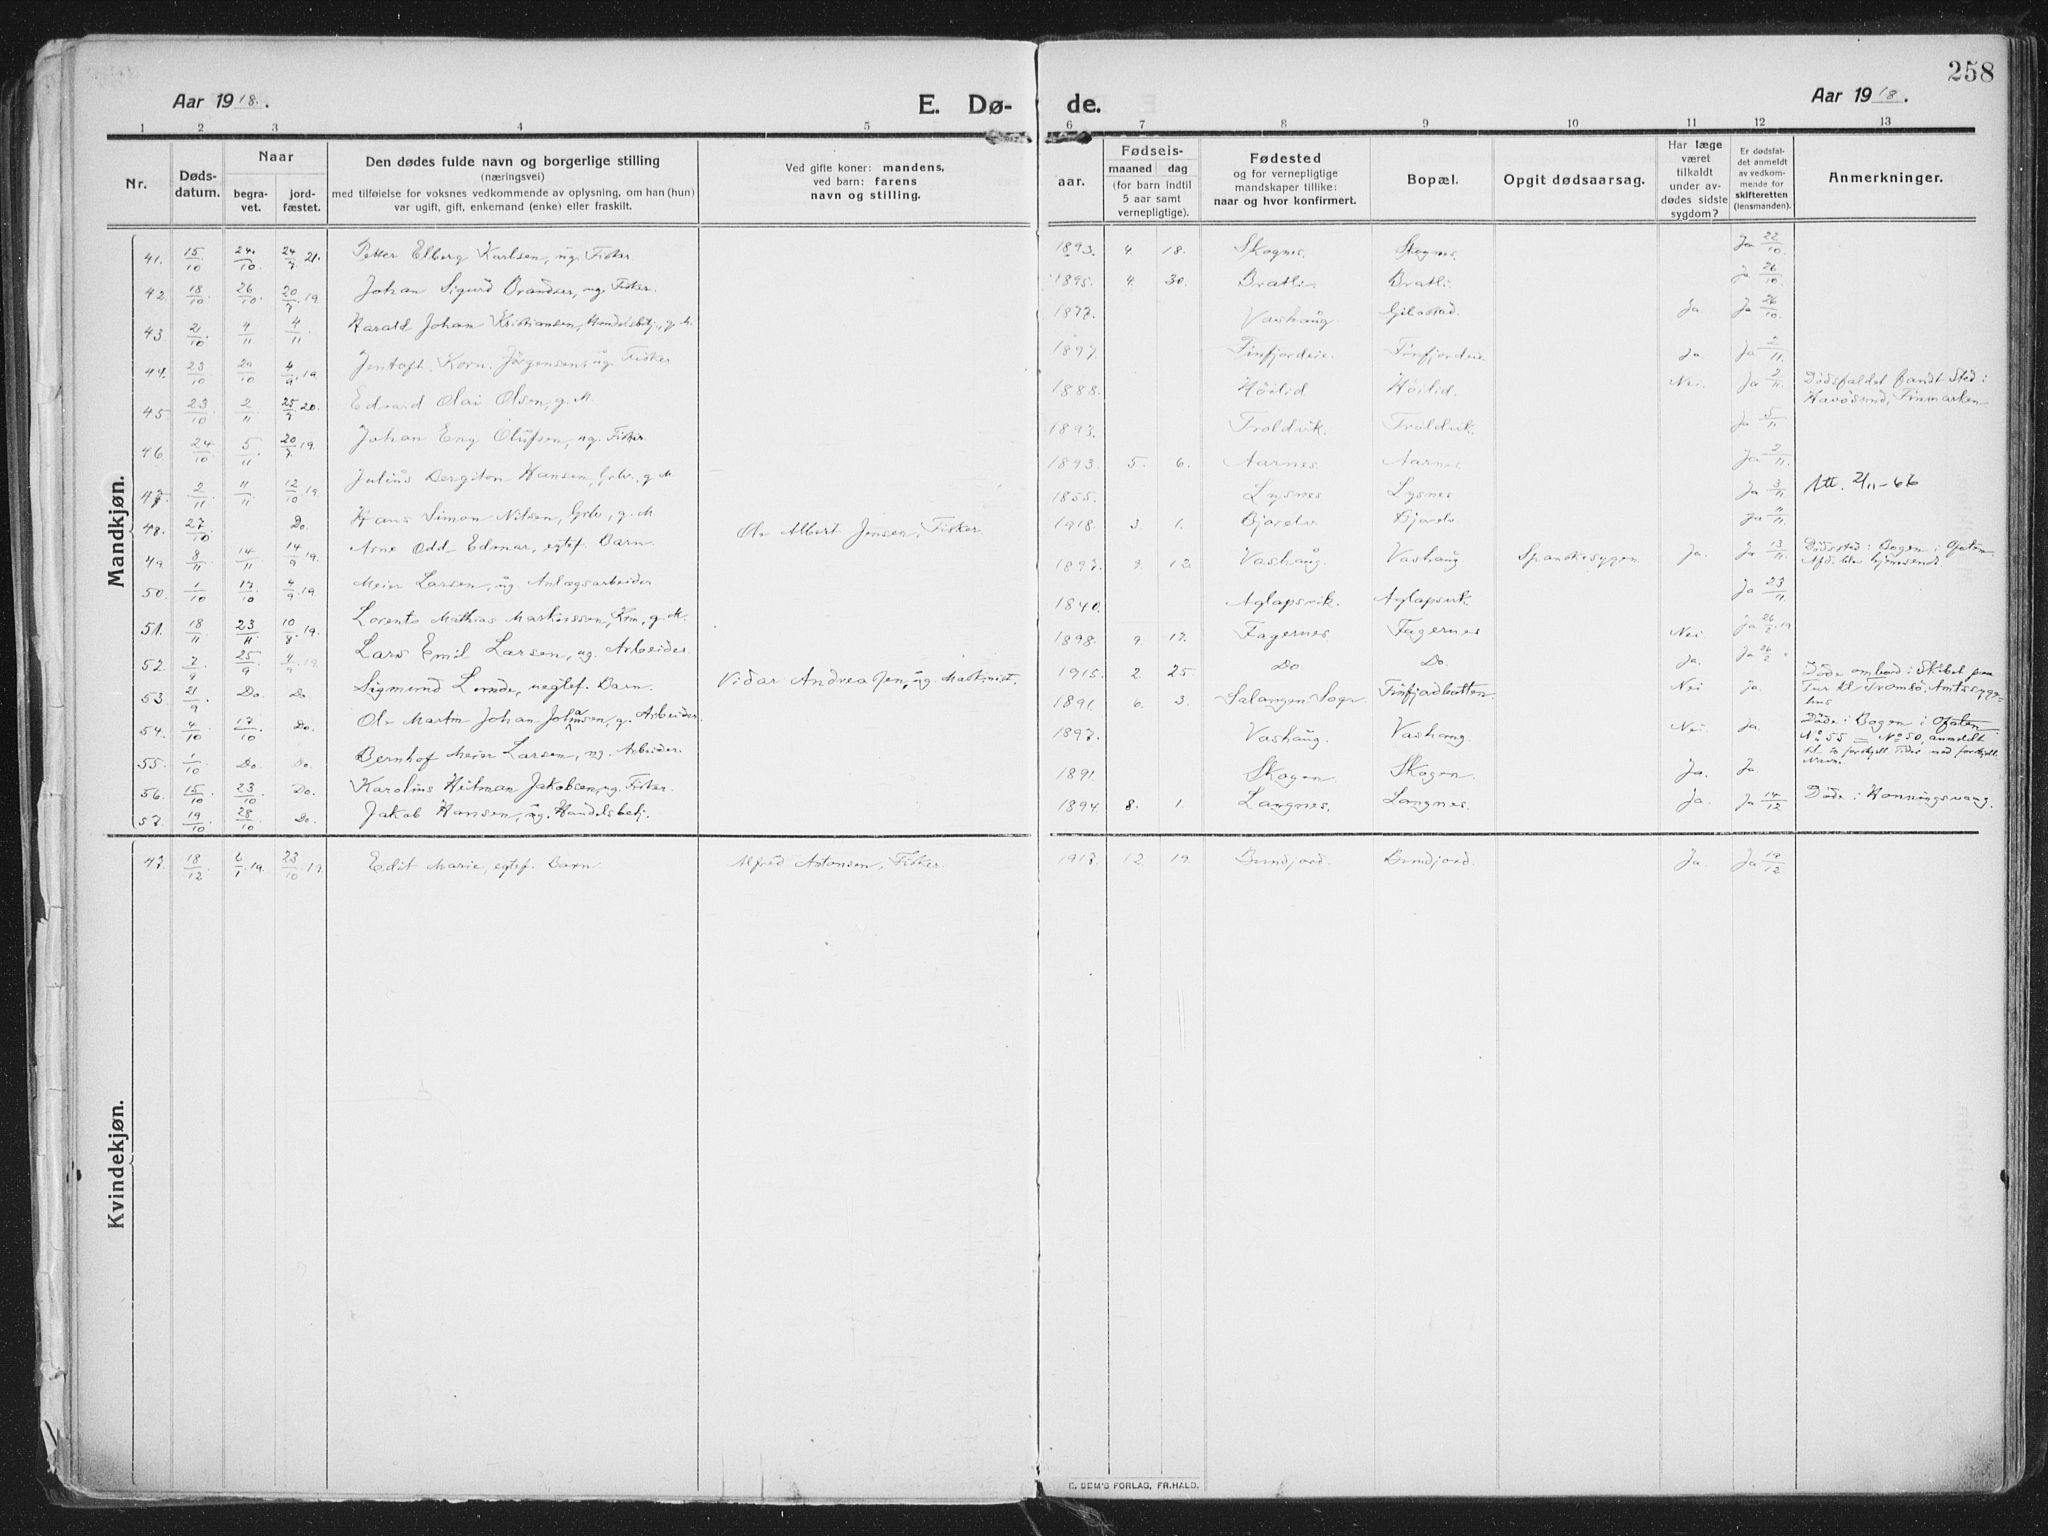 258
Aar 1918.
E. Dø- de.
Aar 1918.
1 2 3 4 5 6 7 8 9 10 11 12 13
Nr.
Døds-
datum.
Naar
begra-
vet.
jord-
fæstet.
Den dødes fulde navn og borgerlige stilling
(næringsvei)
med tilføielse for voksnes vedkommende av oplysning, om han (hun)
var ugift, gift, enkemand (enke) eller fraskilt.
Ved gifte koner: mandens,
ved barn: farens
navn og stilling.
aar.
Fødseis-
maaned dag
(for barn indtil
5 aar samt
vernepligtige).
Fødested
og for vernepligtige
mandskaper tillike:
naar og hvor konfirmert.
Bopæl.
Opgit dødsaarsag.
Har læge
været
tilkaldt
under av-
dødes sidste
sygdom?
Er dødsfal-
det anmeldt
av vedkom-
mende for
skifteretten
(lensmanden).
Anmerkninger.
Mandkjøn.
41. 15/10 24/10 24/7 21. Petter Elberg Karlsen, ug. Fisker. 1893. 4. 18. Skognes. Skognes. Ja 22/10
42. 18/10 26/10 20/7 19. Johan Sigurd Brandser, ug. Fisker. 1895. 4. 30. Bratli. Bratli. Ja 26/10
43. 21/10 4/11 4/11 Harald Johan Kristiansen, Handelsbetj., g. M. 1877. Vashaug. Ja Ja 26/10
44. 23/10 29/10 4/9 19. Jentoft Korn. Jørgensen, ug. Fisker 1897. Finfjordeie. Finfjordeie. Ja Ja 2/11
45. 23/10 2/11 25/7 20. Edvard Olai Olsen, g. M. 1888. Høilid Høilid. Nei Ja 2/11 Dødsfaldet fandt Sted i
Havøsund, Finmarken
46. 24/10 5/11 20/7 19. Johan Eng Olufsen, ug. Fisker. 1893. Troldvik. Troldvik. Ja 5/11
47. 2/11 11/11 12/10 19 Julius Bergiton Hansen, Grbr., g. M. 1893. 5. 6. Aarnes. Aarnes. Ja 2/11
48. 27/10 Do. Hans Simon Nilsen, Grbr, g. M. 1855. Lysnes Lysnes Ja 3/11 Att. 2/11-66
49. 8/11 14/11 14/9 19. Arne Odd Edmar, egtef. Barn. Ole Albert Jensen, Fisker. 1918. 3. 1. Bjorelv Bjorelv Ja 11/11
50. 1/10 17/10 4/9 19. Meier Larsen, ug. Anlægsarbeider 1897. 9. 12. Vashaug Vashaug Spanskesygen Ja. Ja 13/11 Dødssted: Bogen i Ofoten.
Afd. blev hjemsendt.
51. 18/11 23/11 10/8 19. Lorents Mathias Markussen, Krm, g. M. 1840. Aglapsvik. Aglapsvik. Ja 23/11
52. 7/9 25/9 4/9 19. Lars Emil Larsen, ug. Arbeider 1898. 9. 17. Fagernes Fagernes Nei Ja 26/2 19
53. 21/9 Do. Do. Sigmund uegtef. Barn. Vidar Andreassen, ug. Maskinist. 1915. 2. 25. Do Do. Ja. Ja 26/2
54. 4/10 17/10 Do. Ole Martin Johan Johansen, g. Arbeider. 1891. 6. 3. Salangen Sogn Finfjordbotten. Nei Ja. Døde ombord i Skibet paa
Tur til Tromsø Amtssyge-
hus
55. 1/10 Do. Do. Bernhof Meier Larsen, ug. Arbeider. 1897. Vashaug. Vashaug. Nei Ja. Døde i Bogen i Ofoten
No 55 = No 50, anmeldt
til to forskjell. Tider med forskjell.
Navn.
56. 15/10 23/10 Do. Karolius Hitman Jakobsen, ug. Fisker. 1891. Skogen Skogen. Ja. Ja.
57. 19/10 28/10 Do. Jakob Hansen, ug. Handelsbetj. 1894. 8. 1. Langnes. Langnes. Ja. Ja 14/12 Døde i Honningsvaag.
Kvindekjøn.
47. 18/12 6/1 19. 23/10 19. Edit Marie, egtef. Barn Alfred Antonsen, Fisker 1917. 12. 19. Bundjord. Bundjord. Ja. Ja 19/12
E. SEM'S FORLAG, FR.HALD.